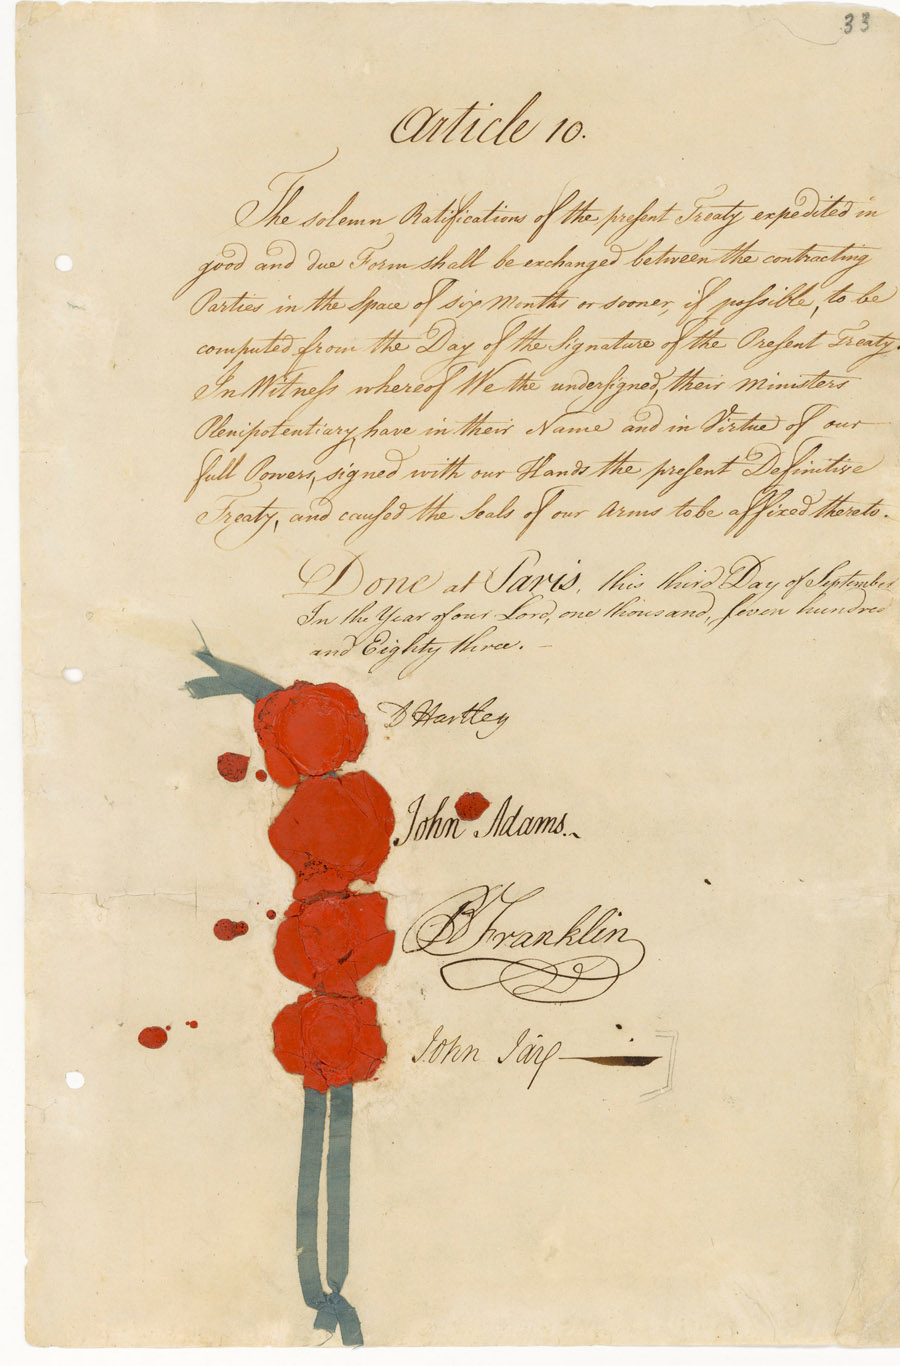 33
Article 10.
The solemn Ratifications of the present Treaty expedited in
good and due Form shall be exchanged between the contracting
Parties in the Space of six Months or sooner, if possible, to be
computed from the Day of the Signature of the Present Treaty.
In Witness whereof We the undersigned, their Ministers
Plenipotentiary, have in their Name and in Virtue of our
full Powers, signed with our Hands the present Definitive
Treaty, and caused the Seals of our Arms to be affixed thereto.
Done at Paris, this third Day of September
In the Year of our Lord, one thousand, seven hundred
and Eighty three. –
D Hartley
John Adams.
B Franklin
John Jay